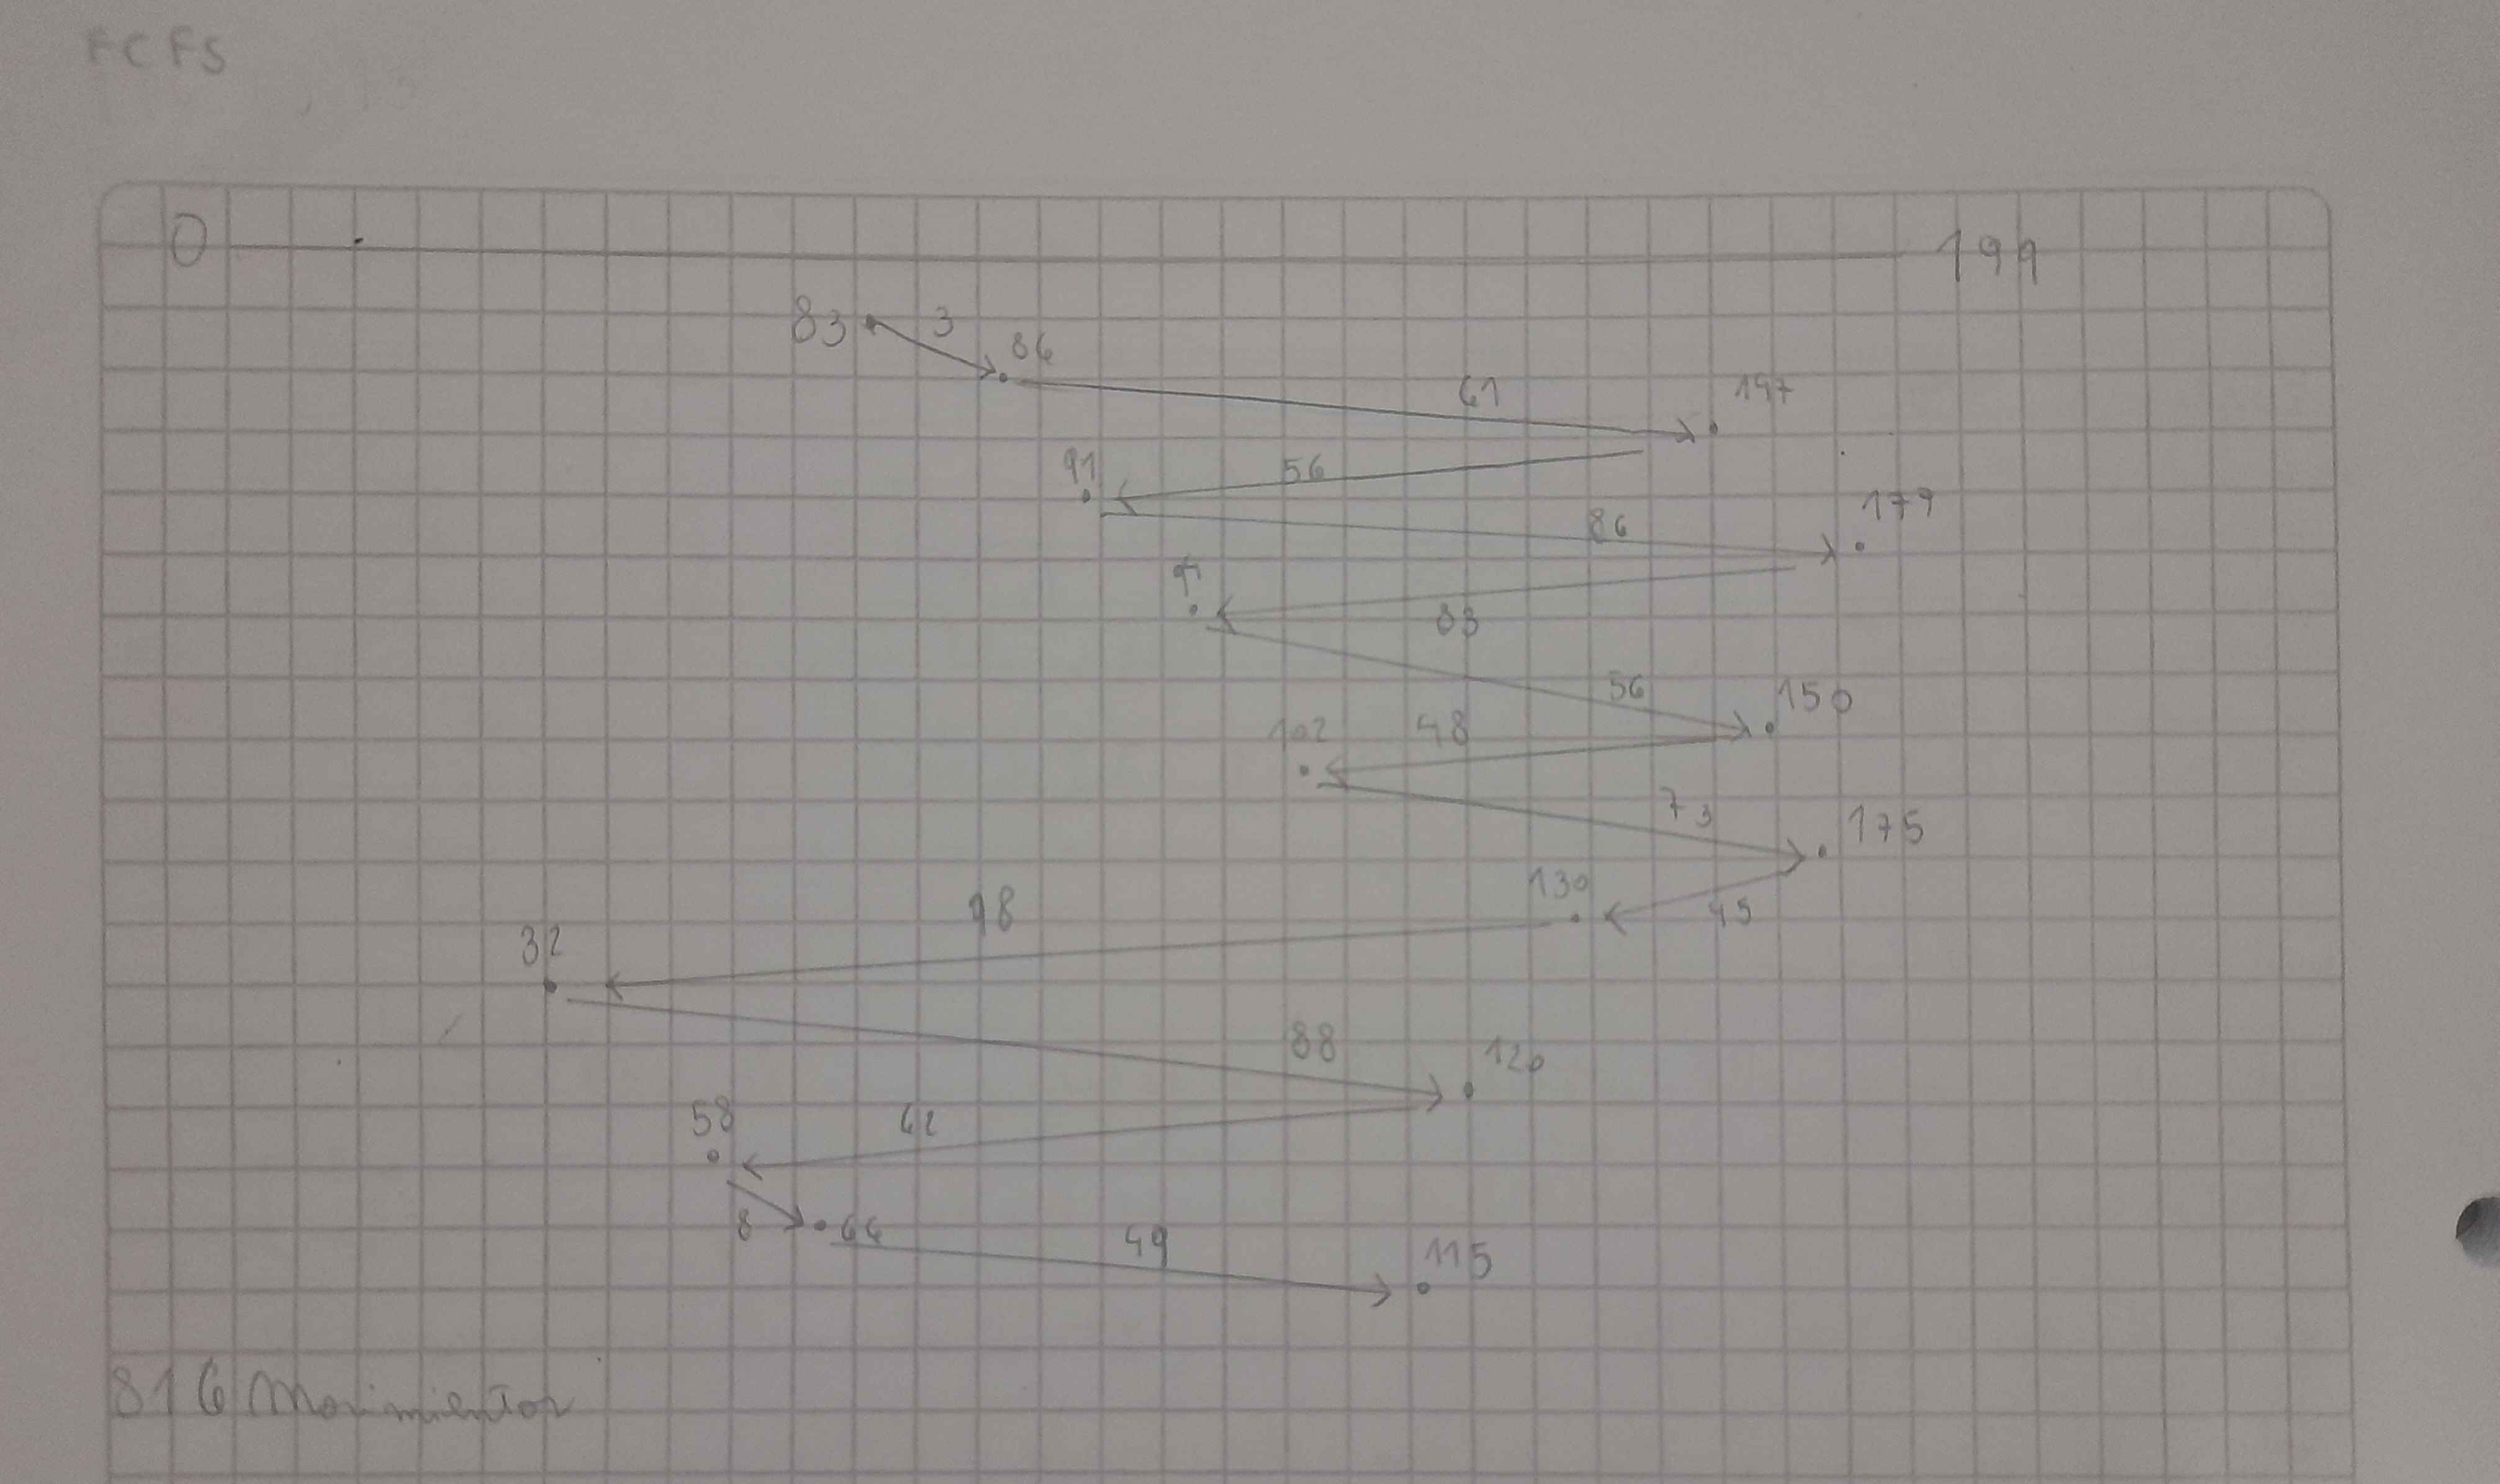 FCFS
0 199
83 3 86
61 147
91 56
86 177
83
56 150
102 48
73 175
130 45
32 98
88 120
58 62
8 66 49 115
816 Movimientos